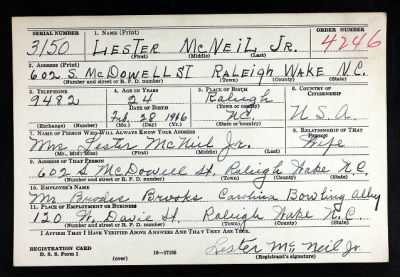 SERIAL NUMBER 1. NAME (Print) ORDER NUMBER
3150 LESTER McNEIL JR. 4246
(First) (Middle) (Last)
2. ADDRESS (Print)
602 S. McDOWELL ST RALEIGH WAKE N.C.
(Number and street or R. F. D. number) (Town) (County) (State)
3. TELEPHONE 4. AGE IN YEARS 5. PLACE OF BIRTH 6. COUNTRY OF CITIZENSHIP
9482 24 Raleigh
DATE OF BIRTH (Town or county)
Feb 28 1916 N.C. U.S.A.
(Exchange) (Number) (Mo.) (Day) (Yr.) (State or country)
7. NAME OF PERSON WHO WILL ALWAYS KNOW YOUR ADDRESS 8. RELATIONSHIP OF THAT PERSON
Mrs Lester McNeil Jr. Wife
(Mr., Mrs., Miss) (First) (Middle) (Last)
9. ADDRESS OF THAT PERSON
602 S McDowell St. Raleigh Wake N.C.
(Number and street or R. F. D. number) (Town) (County) (State)
10. EMPLOYER'S NAME
Mr Brooks Carolina Bowling Alley
11. PLACE OF EMPLOYMENT OR BUSINESS
120 W. Davie St. Raleigh Wake N.C.
(Number and street or R. F. D. number) (Town) (County) (State)
I AFFIRM THAT I HAVE VERIFIED ABOVE ANSWERS AND THAT THEY ARE TRUE.
REGISTRATION CARD
D. S. S. Form 1 16-17105 Lester McNeil Jr.
(over) (Registrant's signature)